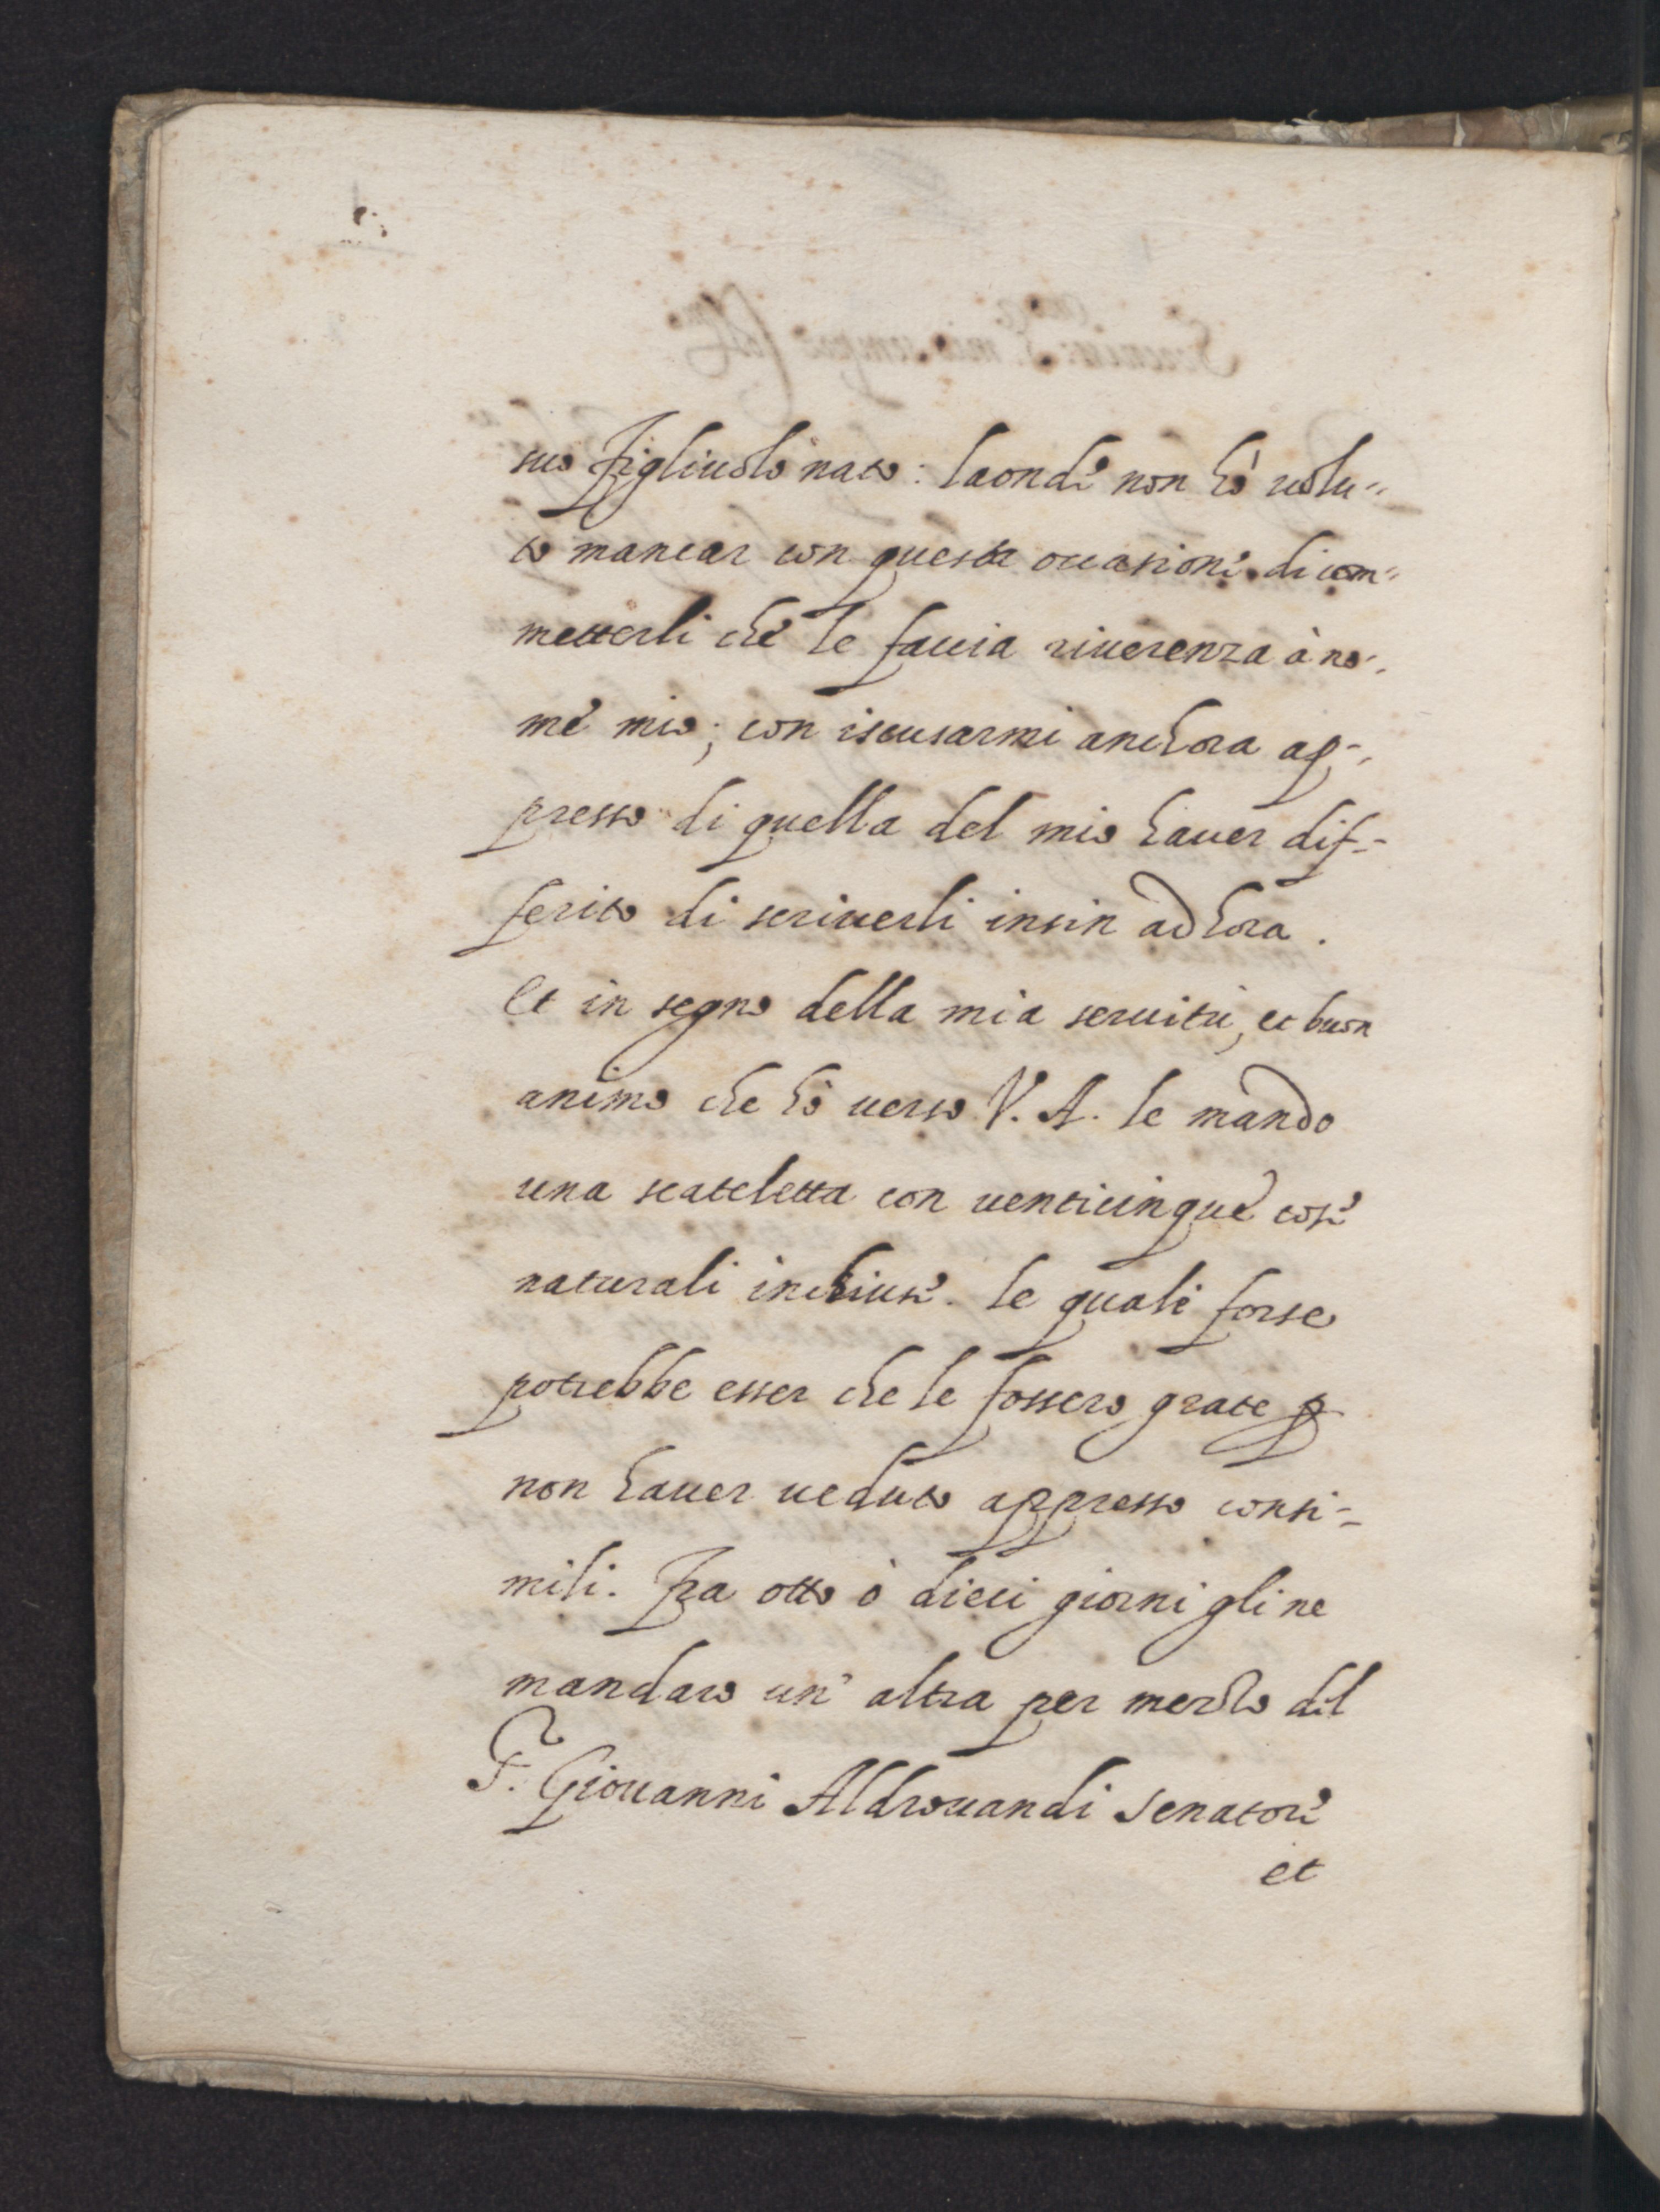 suo figliuolo nato: laonde non hò uolu-
to mancar con questa occasione di com-
metterli che le faccia riuerenza à no-
me mio; con iscusarmi anchora ap-
presso di quella del mio hauer dif-
ferito di scriuerli insin adhora.
Et in segno della mia seruitù, et buon
animo che hò uerso V. A. le mando
una scateletta con uenticinque cose
naturali inchiuse. le quali forse
potrebbe esser che le fossero grate p
non hauer ueduto appresso consi-
mili. Fra otto ò dieci giorni gli ne
mandaro un' altra per mezo del
S. Giouanni Aldrouandi Senatore
et